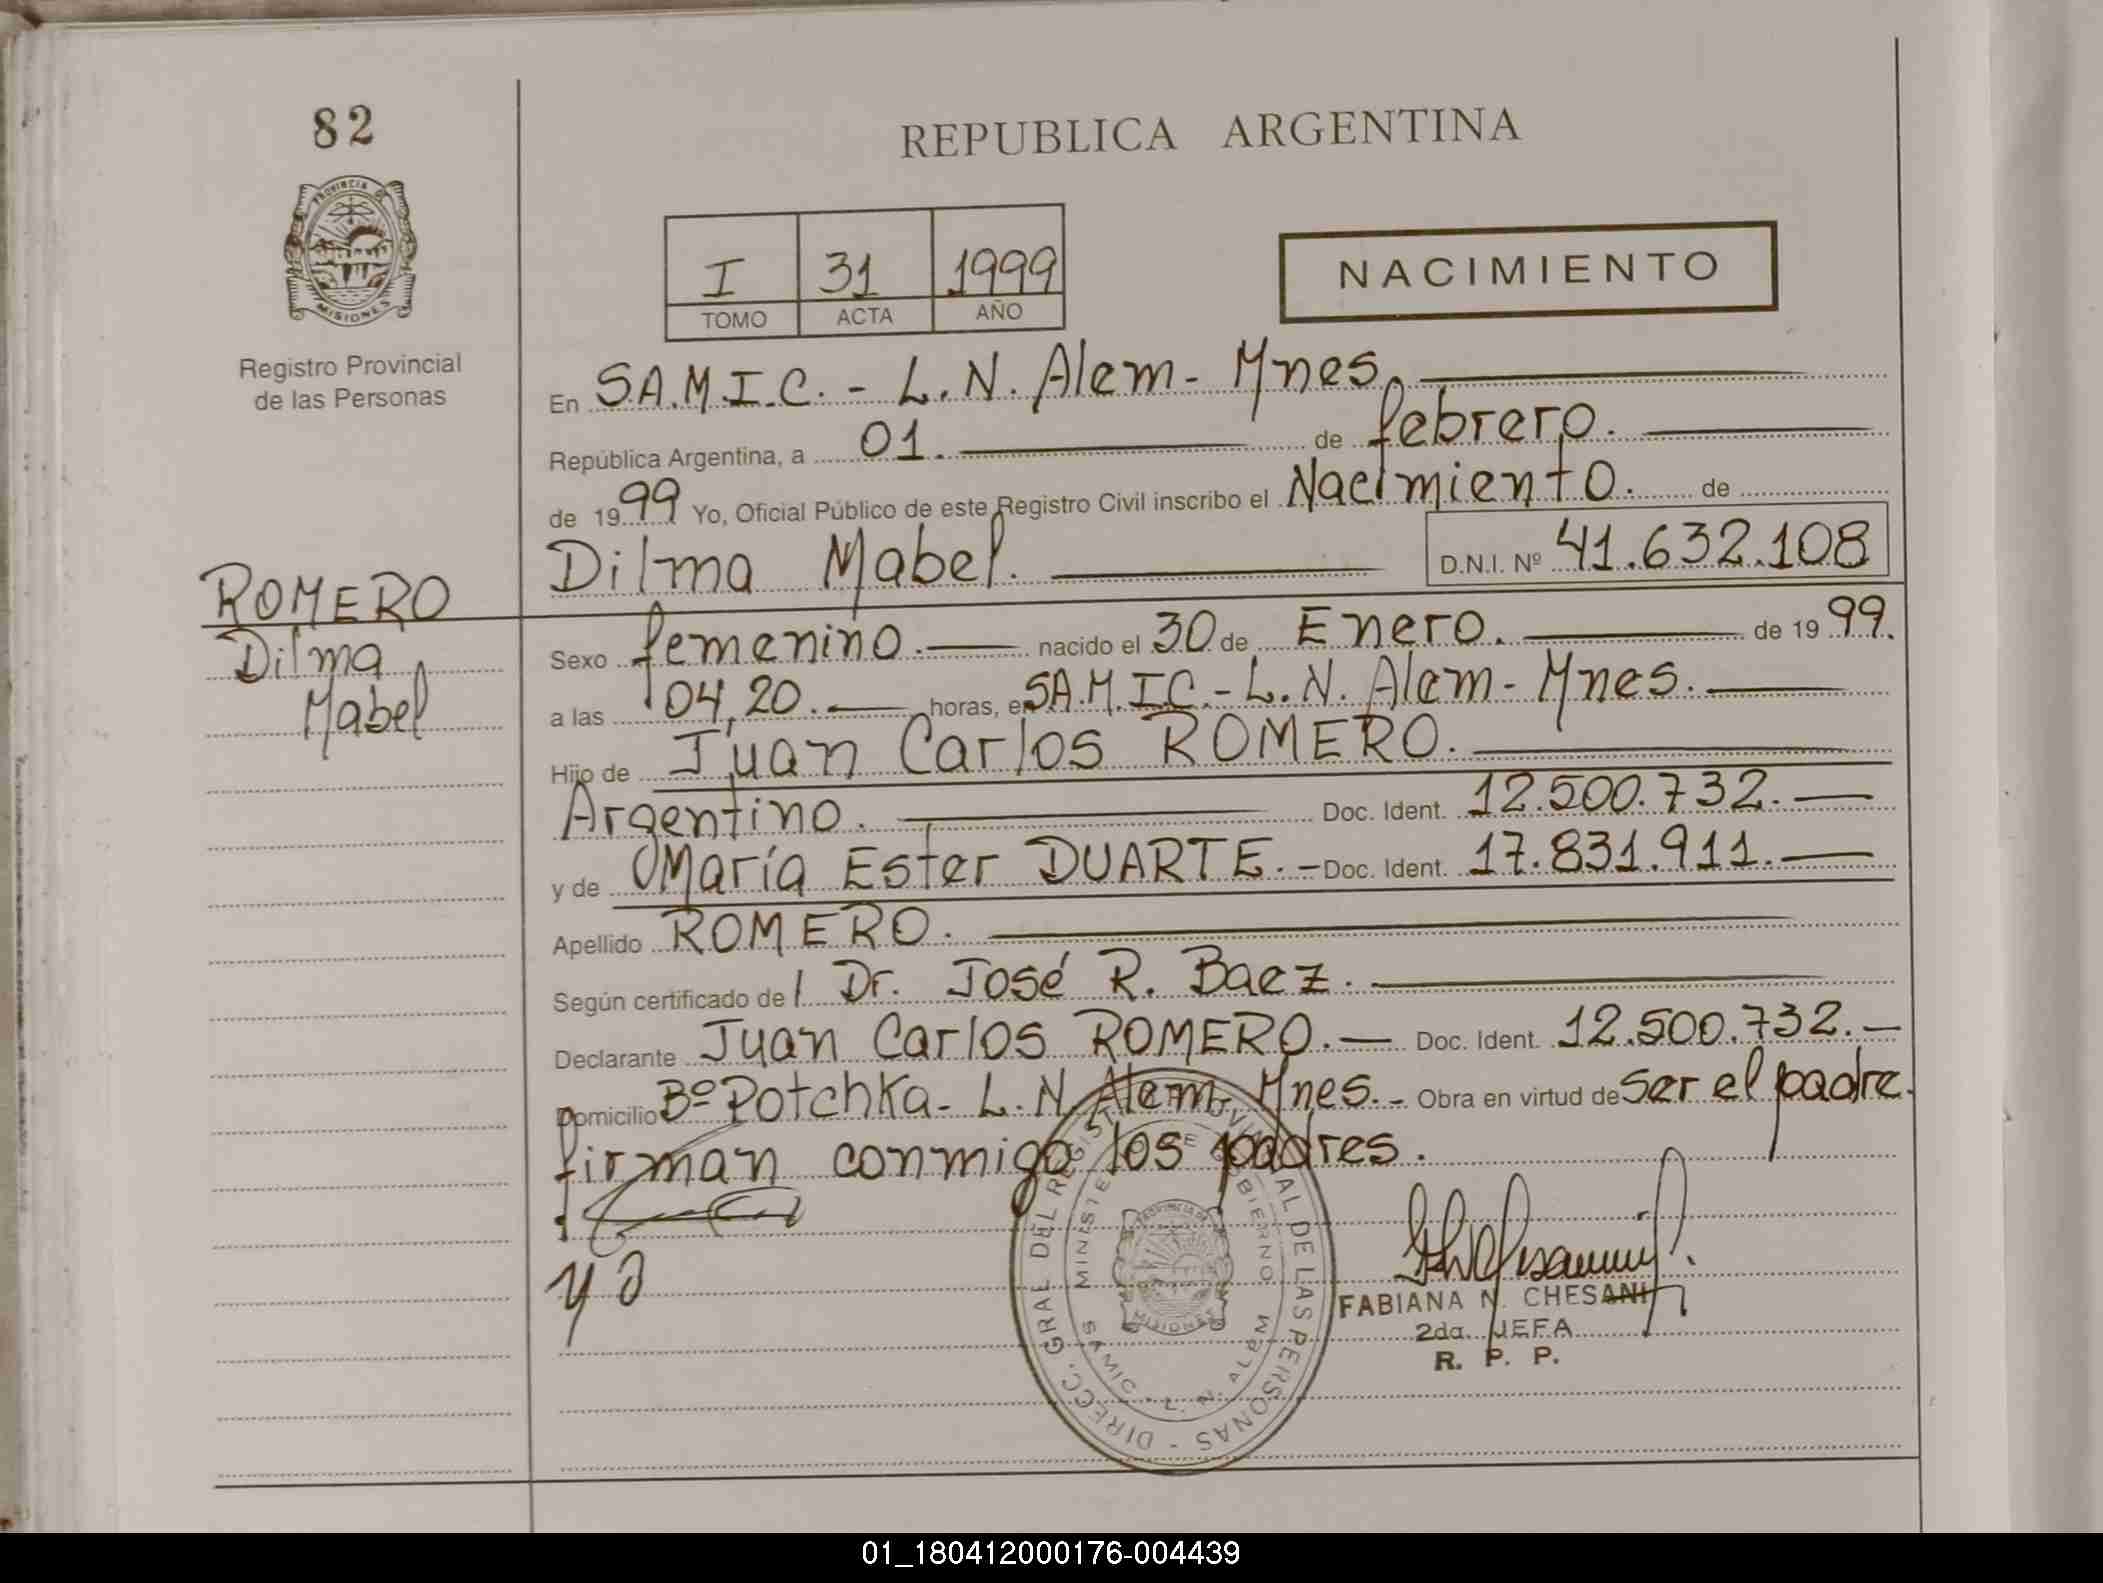 82
REPUBLICA ARGENTINA
PROVINCIA DE
MISIONES
I 31 1999
TOMO ACTA AÑO
NACIMIENTO
Registro Provincial
de las Personas
En S.A.M.I.C. - L.N. Alem - Mnes.
República Argentina, a 01. de febrero.
de 1999 Yo, Oficial Público de este Registro Civil inscribo el Nacimiento. de
Dilma Mabel. D.N.I. Nº 41.632.108
ROMERO
Dilma
Mabel
Sexo femenino. nacido el 30 de Enero. de 1999.
a las 04,20. horas, en S.A.M.I.C. - L.N. Alem - Mnes.
Hijo de Juan Carlos ROMERO.
Argentino. Doc. Ident. 12.500.732.
y de María Ester DUARTE. Doc. Ident. 17.831.911.
Apellido ROMERO.
Según certificado del Dr. José R. Baez.
Declarante Juan Carlos ROMERO. Doc. Ident. 12.500.732.
Domicilio Bº Potchka - L.N. Alem, Mnes. Obra en virtud de ser el padre.
firman conmigo los padres.
FABIANA N. CHESANI
2da. JEFA
R. P. P.
DIRECC. GRAL DEL REGISTRO PROVINCIAL DE LAS PERSONAS -
MINISTERIO DE GOBIERNO
SAMIC - L. N. ALEM
PROVINCIA DE
MISIONES
01_180412000176-004439